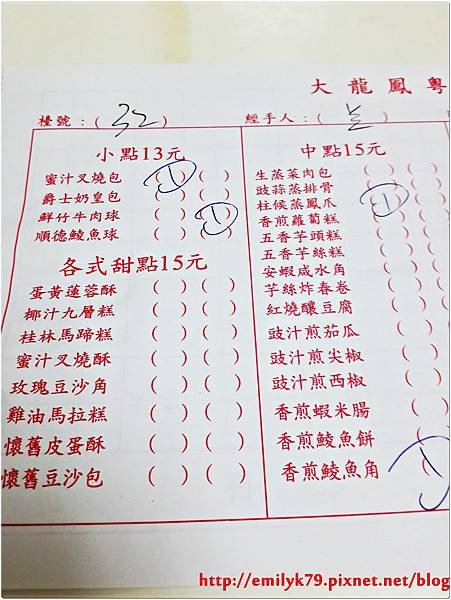 大龍鳳粵
檯號：( 32 ) 經手人：(
小點13元
蜜汁叉燒包 (1) ( )
爵士奶皇包 ( ) ( )
鮮竹牛肉球 ( ) (1)
順德鯪魚球 ( ) ( )
各式甜點15元
蛋黃蓮蓉酥 ( ) ( )
椰汁九層糕 ( ) ( )
桂林馬蹄糕 ( ) ( )
蜜汁叉燒酥 ( ) ( )
玫瑰豆沙角 ( ) ( )
雞油馬拉糕 ( ) ( )
懷舊皮蛋酥 ( ) ( )
懷舊豆沙包 ( ) ( )
中點15元
生蒸菜肉包 ( ) ( )
豉蒜蒸排骨 ( ) ( )
柱候蒸鳳爪 (1) ( )
香煎蘿蔔糕 ( ) ( )
五香芋頭糕 ( ) ( )
五香芋絲糕 ( ) ( )
安蝦咸水角 ( ) ( )
芋絲炸春卷 ( ) ( )
紅燒釀豆腐 ( ) ( )
豉汁煎茄瓜 ( ) (
豉汁煎尖椒 ( ) (
豉汁煎西椒 ( ) (
香煎蝦米腸 ( ) (
香煎鯪魚餅 ( ) (
香煎鯪魚角 (1
http://emilyk79.pixnet.net/blog